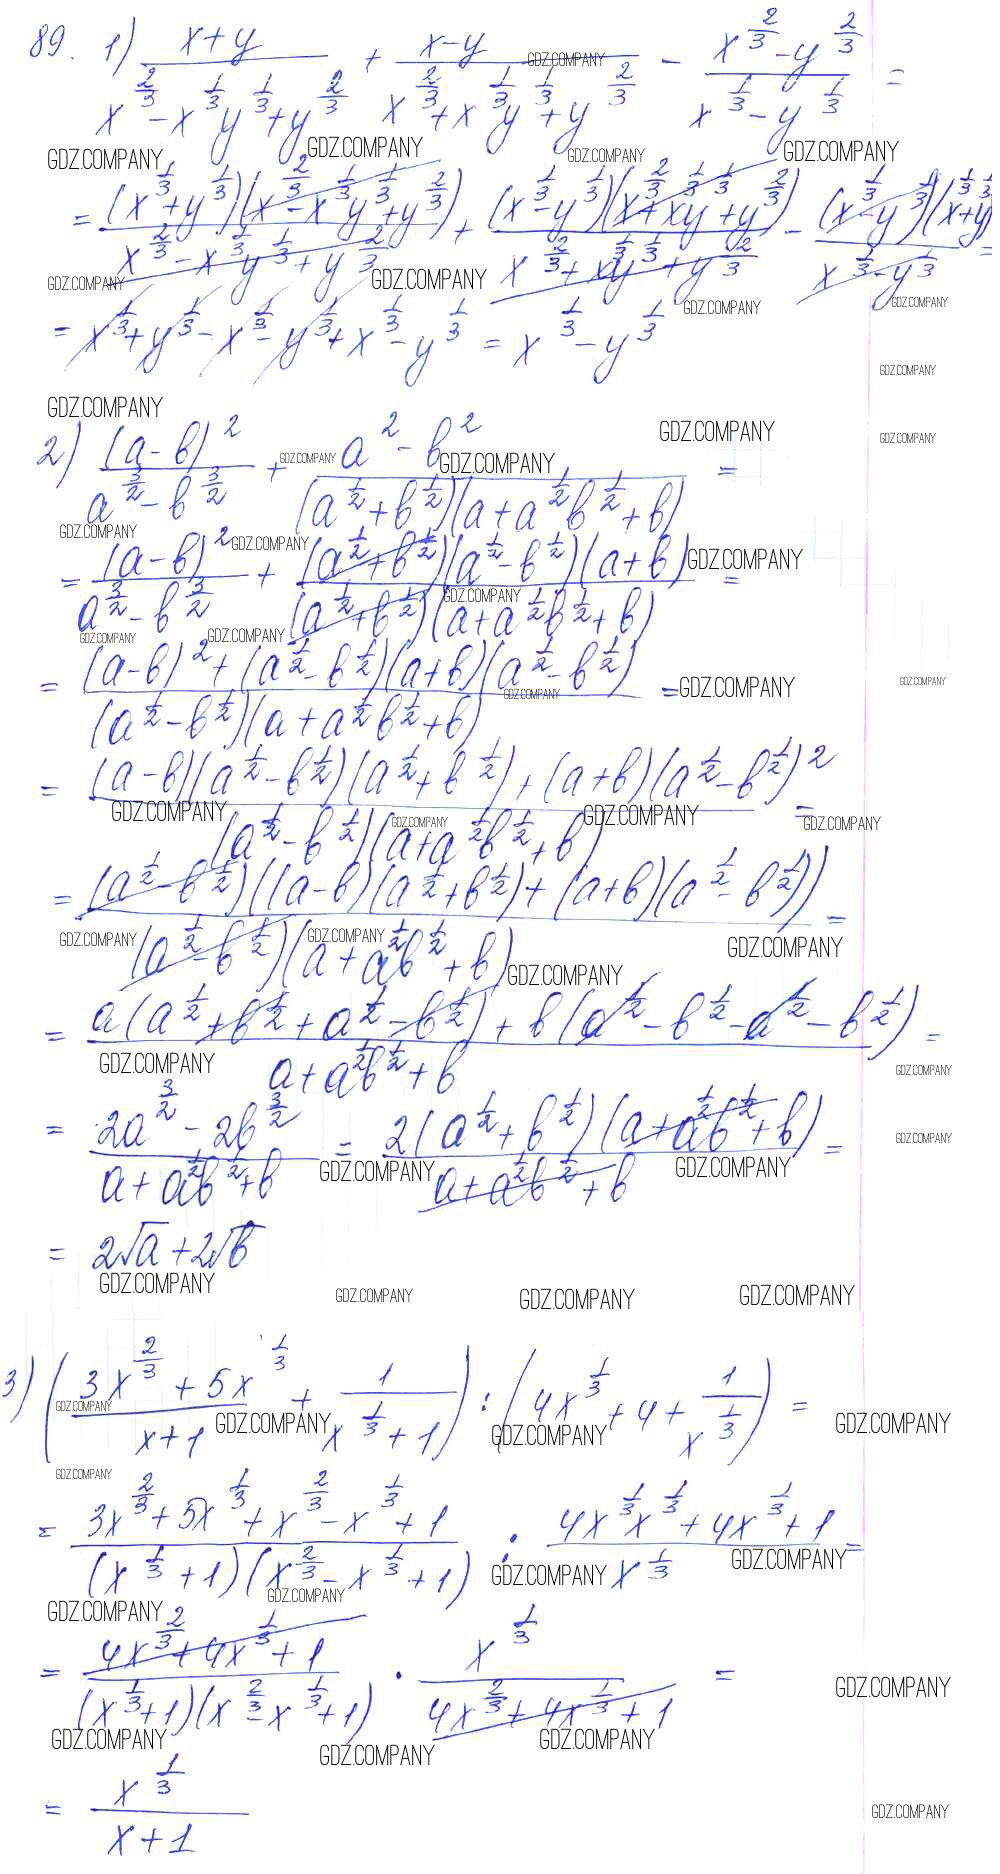 89. 1) (x+y)/(x^(2/3) - x^(1/3)y^(1/3) + y^(2/3)) + (x-y)/(x^(2/3) + x^(1/3)y^(1/3) + y^(2/3)) - (x^(2/3) - y^(2/3))/(x^(1/3) - y^(1/3)) =
= (x^(1/3) + y^(1/3))(x^(2/3) - x^(1/3)y^(1/3) + y^(2/3))/(x^(2/3) - x^(1/3)y^(1/3) + y^(2/3)) + (x^(1/3) - y^(1/3))(x^(2/3) + x^(1/3)y^(1/3) + y^(2/3))/(x^(2/3) + x^(1/3)y^(1/3) + y^(2/3)) - (x^(1/3) - y^(1/3))(x^(1/3) + y^(1/3))/(x^(1/3) - y^(1/3)) =
= x^(1/3) + y^(1/3) - x^(1/3) - y^(1/3) + x^(1/3) - y^(1/3) = x^(1/3) - y^(1/3)
2) (a-b)^2/(a^(3/2) - b^(3/2)) + (a^2 - b^2)/((a^(1/2) + b^(1/2))(a + a^(1/2)b^(1/2) + b)) =
= (a-b)^2/(a^(3/2) - b^(3/2)) + (a^(1/2) + b^(1/2))(a^(1/2) - b^(1/2))(a+b)/((a^(1/2) + b^(1/2))(a + a^(1/2)b^(1/2) + b)) =
= ((a-b)^2 + (a^(1/2) - b^(1/2))(a+b)(a^(1/2) - b^(1/2)))/((a^(1/2) - b^(1/2))(a + a^(1/2)b^(1/2) + b)) =
= ((a-b)(a^(1/2) - b^(1/2))(a^(1/2) + b^(1/2)) + (a+b)(a^(1/2) - b^(1/2))^2)/((a^(1/2) - b^(1/2))(a + a^(1/2)b^(1/2) + b)) =
= (a^(1/2) - b^(1/2))((a-b)(a^(1/2) + b^(1/2)) + (a+b)(a^(1/2) - b^(1/2)))/((a^(1/2) - b^(1/2))(a + a^(1/2)b^(1/2) + b)) =
= (a(a^(1/2) + b^(1/2) + a^(1/2) - b^(1/2)) + b(a^(1/2) - b^(1/2) - a^(1/2) - b^(1/2)))/(a + a^(1/2)b^(1/2) + b) =
= (2a^(3/2) - 2b^(3/2))/(a + a^(1/2)b^(1/2) + b) = 2(a^(1/2) + b^(1/2))(a + a^(1/2)b^(1/2) + b)/(a + a^(1/2)b^(1/2) + b) =
= 2√a + 2√b
3) ((3x^(2/3) + 5x^(1/3))/(x+1) + 1/(x^(1/3) + 1)) : (4x^(1/3) + 4 + 1/x^(1/3)) =
= (3x^(2/3) + 5x^(1/3) + x^(2/3) - x^(1/3) + 1)/((x^(1/3) + 1)(x^(2/3) - x^(1/3) + 1)) : (4x^(1/3)x^(1/3) + 4x^(1/3) + 1)/x^(1/3) =
= (4x^(2/3) + 4x^(1/3) + 1)/((x^(1/3) + 1)(x^(2/3) - x^(1/3) + 1)) · x^(1/3)/(4x^(2/3) + 4x^(1/3) + 1) =
= x^(1/3)/(x+1)
GDZ.COMPANY